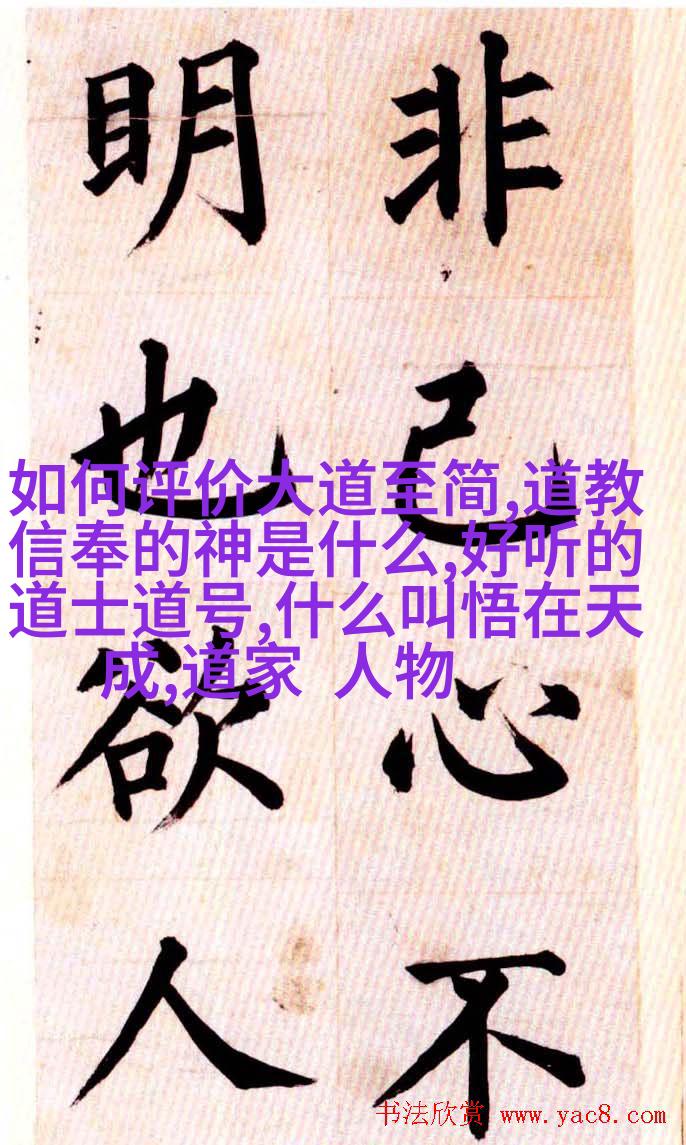 非己心不
明也欲人
如何评价大道至简,道教
信奉的神是什么,好听的
道士道号,什么叫悟在天
成,道家 人物
书法欣赏 www.yac8.com